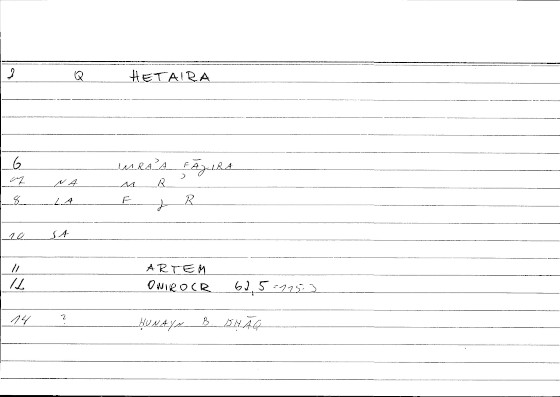 2 Q HETAIRA
6 IMRAʾA FĀǧIRA
07 NA M R ʾ
8 LA F ǧ R
10 SA
11 ARTEM
12 ONIROCR 62,5
14 ? ḤUNAYN B ISḤĀQ